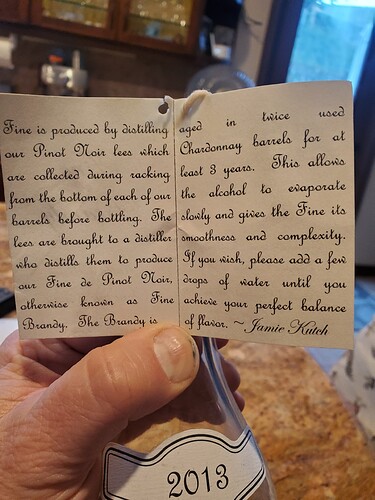 Fine is produced by distilling
our Pinot Noir lees which
are collected during racking
from the bottom of each of our
barrels before bottling. The
lees are brought to a distiller
who distills them to produce
our Fine de Pinot Noir,
otherwise known as Fine
Brandy. The Brandy is
aged in twice used
Chardonnay barrels for at
least 3 years. This allows
the alcohol to evaporate
slowly and gives the Fine its
smoothness and complexity.
If you wish, please add a few
drops of water until you
achieve your perfect balance
of flavor. ~ Jamie Kutch
2013